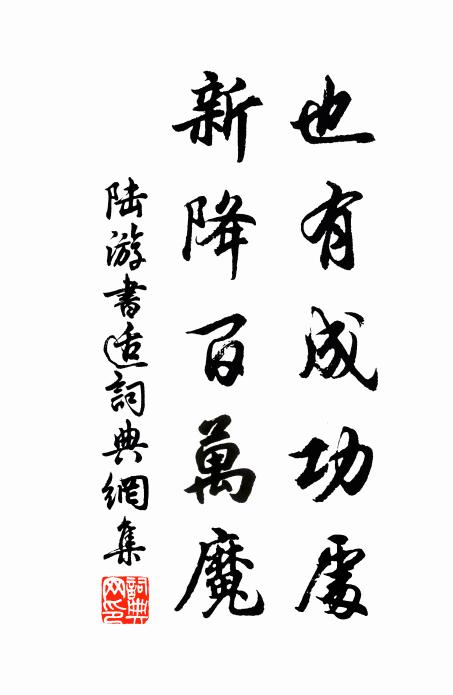 也有成功處
新降百萬魔
陸游書适詞典網集
詞典網印